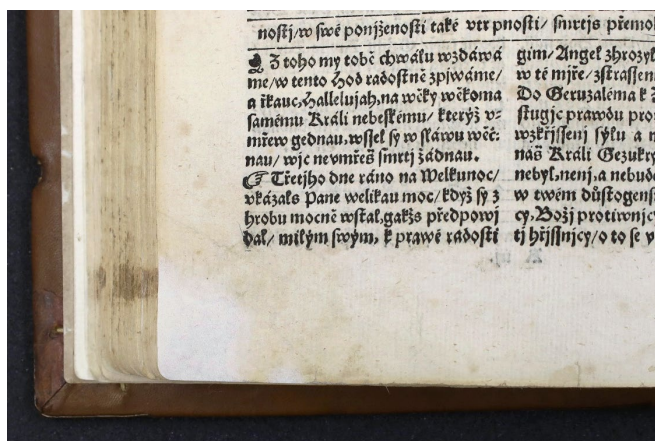 nosti/w swé poníženosti také vtr pnosti/ smrtijs přemo
Z toho my tobě chwálu wzdáwá
me/w tento Hod radostně zpjwáme/
a řkauc, Hallelujah, na wěky wěkoma
samému Králi nebeskému/ kterýž v-
mřew gednau, wssel sy w sláwu wěč:
nau/ wjc nevmřeš smrtj žádnau.
☞ Třetjho dne ráno na Welkunoc/
vkázals Pane welikau moc/ když sy z
hrobu mocně wstal, gakžs předpowj
dal/ milým swým, k prawé radosti
gim/ Angel zhrozyl
w té mjře/ zstrassen
Do Geruzaléma k
stugjc prawdu pro
wzkřjssenj sýlu a m
náš Králi Gezukry
nebyl, nenj, a nebude
w twém důstogens
cy, Božj protiwnjc
tj hřjssnjcy/ o to se v